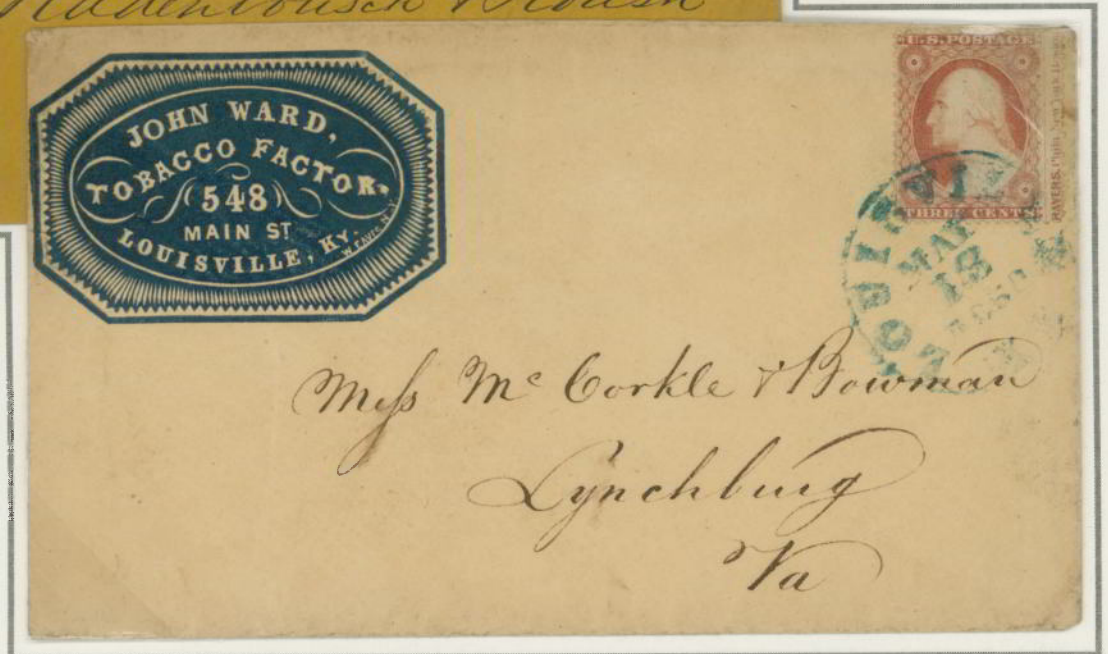 JOHN WARD,
TOBACCO FACTOR.
548
MAIN ST
LOUISVILLE, KY.
U.S. POSTAGE
THREE CENTS
LOUISVILLE
MAR
13
Mess Mc Corkle & Bowman
Lynchburg
Va